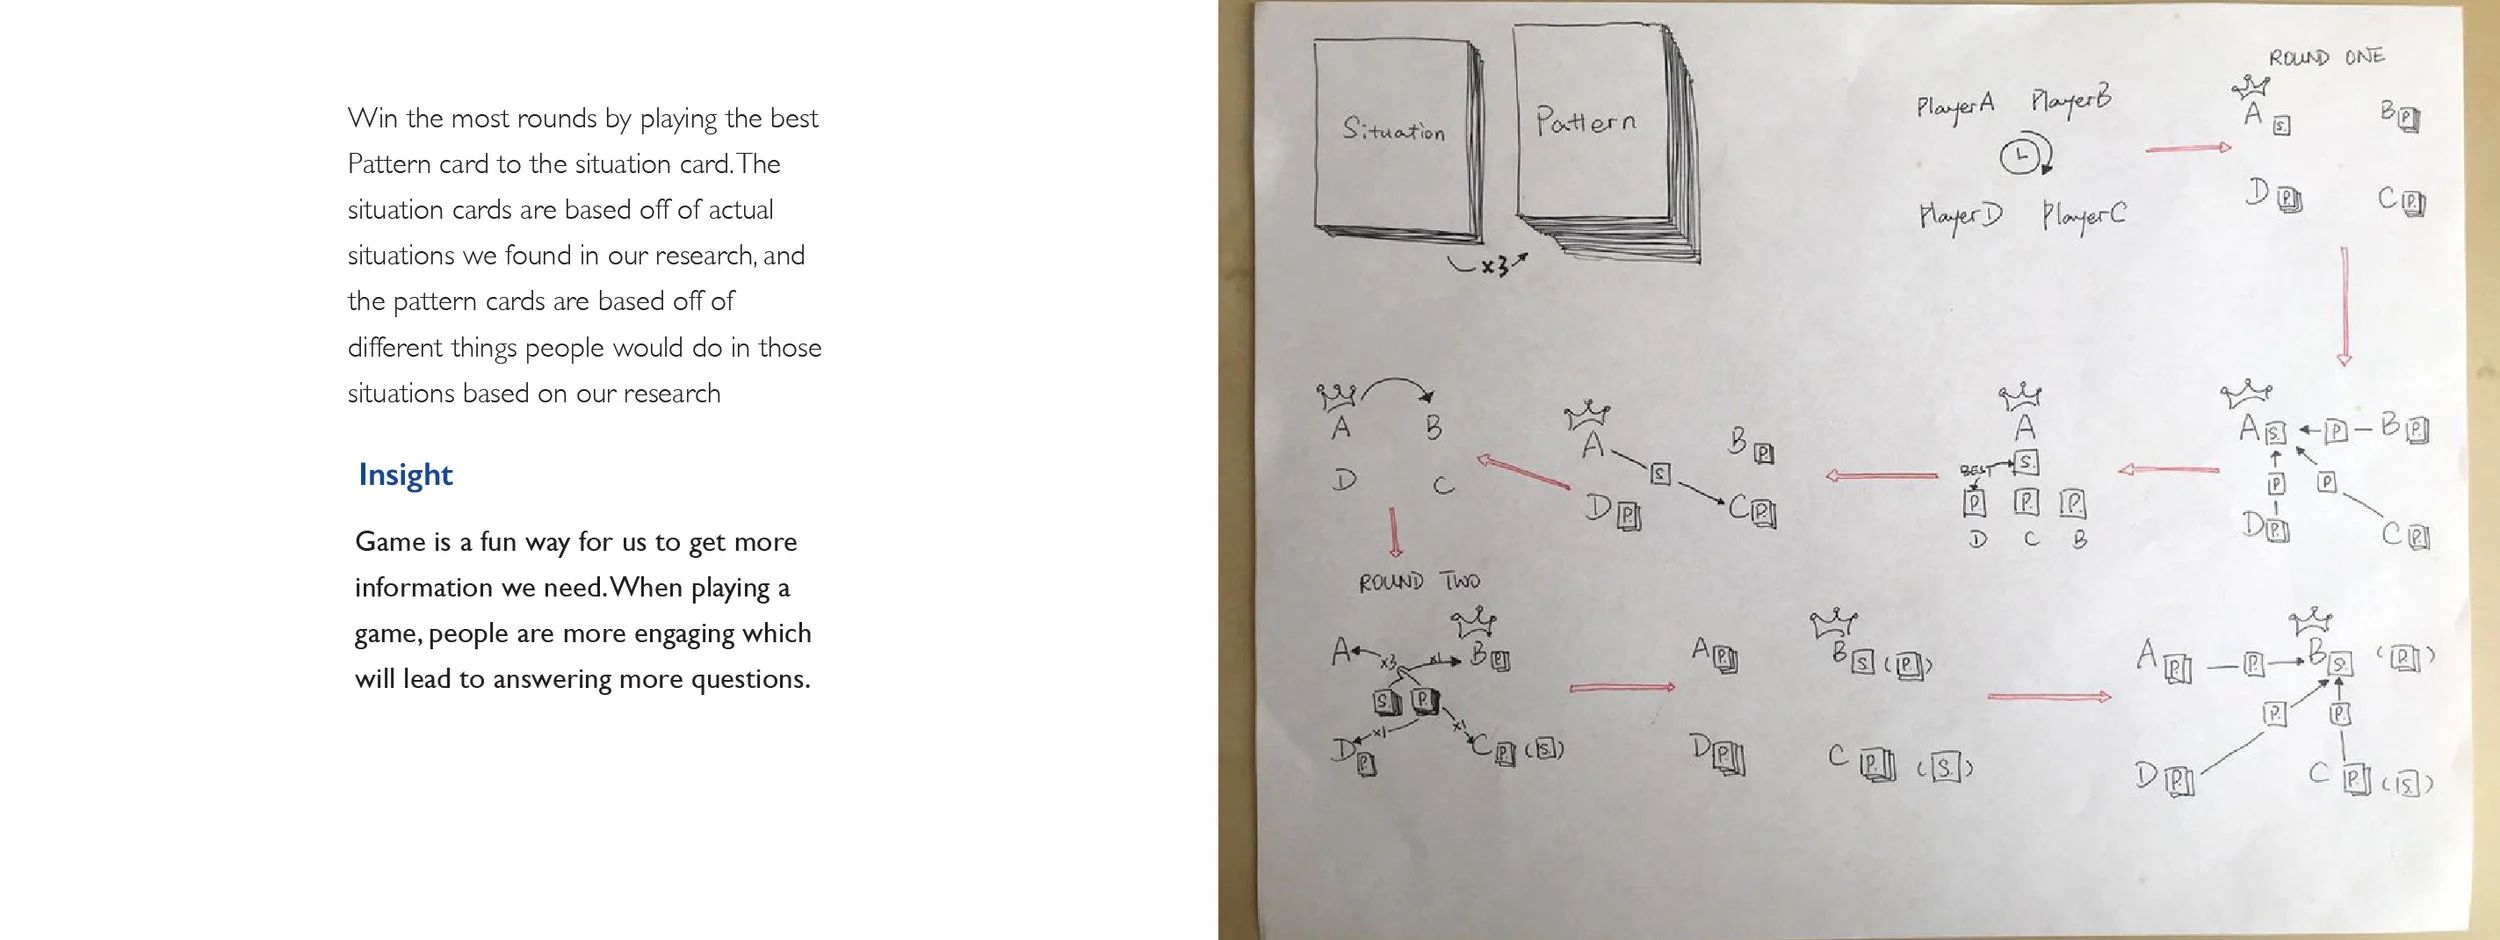 Win the most rounds by playing the best
Pattern card to the situation card. The
situation cards are based off of actual
situations we found in our research, and
the pattern cards are based off of
different things people would do in those
situations based on our research
Insight
Game is a fun way for us to get more
information we need. When playing a
game, people are more engaging which
will lead to answering more questions.
Situation
Pattern
x3
Player A Player B
Player D Player C
ROUND ONE
A S. B P.
D P. C P.
A B
D C
A S. B P.
D P. C P.
A
BEST S.
P. P. P.
D C B
A S. P B P.
P P
D P. C P.
ROUND TWO
A x3 x1 B P.
S. P.
D P. x1 x1 C P. (S.)
A P. B S. (P.)
D P. C P. (S.)
A P. P. B S. (P.)
P. P.
D P. C P. (S.)